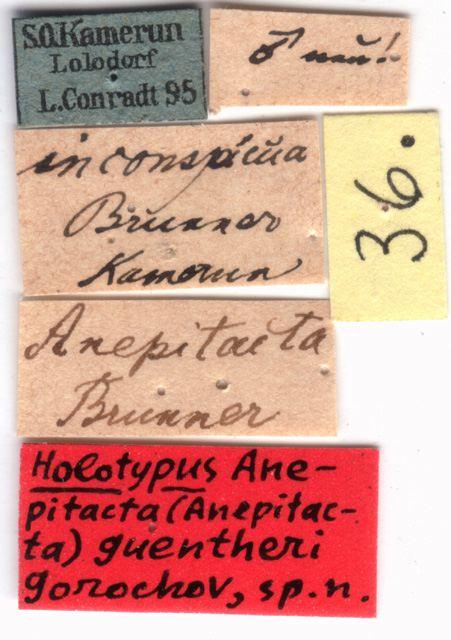 S.O.Kamerun
Lolodorf
L.Conradt 95
♂ neu!
inconspicŭa
Brŭnner
Kamerun
36.
Anepitacta
Brŭnner
Holotypus Ane-
pitacta (Anepitac-
ta) guentheri
Gorochov, sp.n.